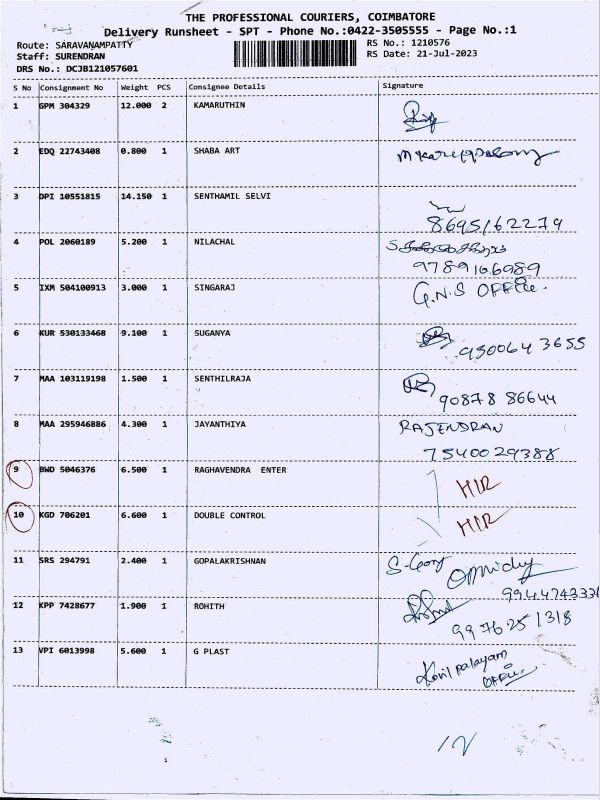 THE PROFESSIONAL COURIERS, COIMBATORE
Delivery Runsheet - SPT - Phone No.:0422-3505555 - Page No.:1
Route: SARAVANAMPATTY RS No.: 1210576
Staff: SURENDRAN RS Date: 21-Jul-2023
DRS No.: DCJB121057601
S No Consignment No Weight PCS Consignee Details Signature
1 GPM 304329 12.000 2 KAMARUTHIN
2 EDQ 22743408 0.800 1 SHABA ART
3 DPI 10551815 14.150 1 SENTHAMIL SELVI
8695162279
4 POL 2060189 5.200 1 NILACHAL
9789166989
5 IXM 504100913 3.000 1 SINGARAJ G.N.S OFFice.
6 KUR 530133468 9.100 1 SUGANYA
9500643655
7 MAA 103119198 1.500 1 SENTHILRAJA
90878 86644
8 MAA 295946886 4.300 1 JAYANTHIYA RAJENDRAN
7540029388
9 BWD 5046376 6.500 1 RAGHAVENDRA ENTER HIR
10 KGD 706201 6.600 1 DOUBLE CONTROL HIR
11 SRS 294791 2.400 1 GOPALAKRISHNAN
12 KPP 7428677 1.900 1 ROHITH
9976251318
13 VPI 6013998 5.600 1 G PLAST Kovilpalayam
OFFice.